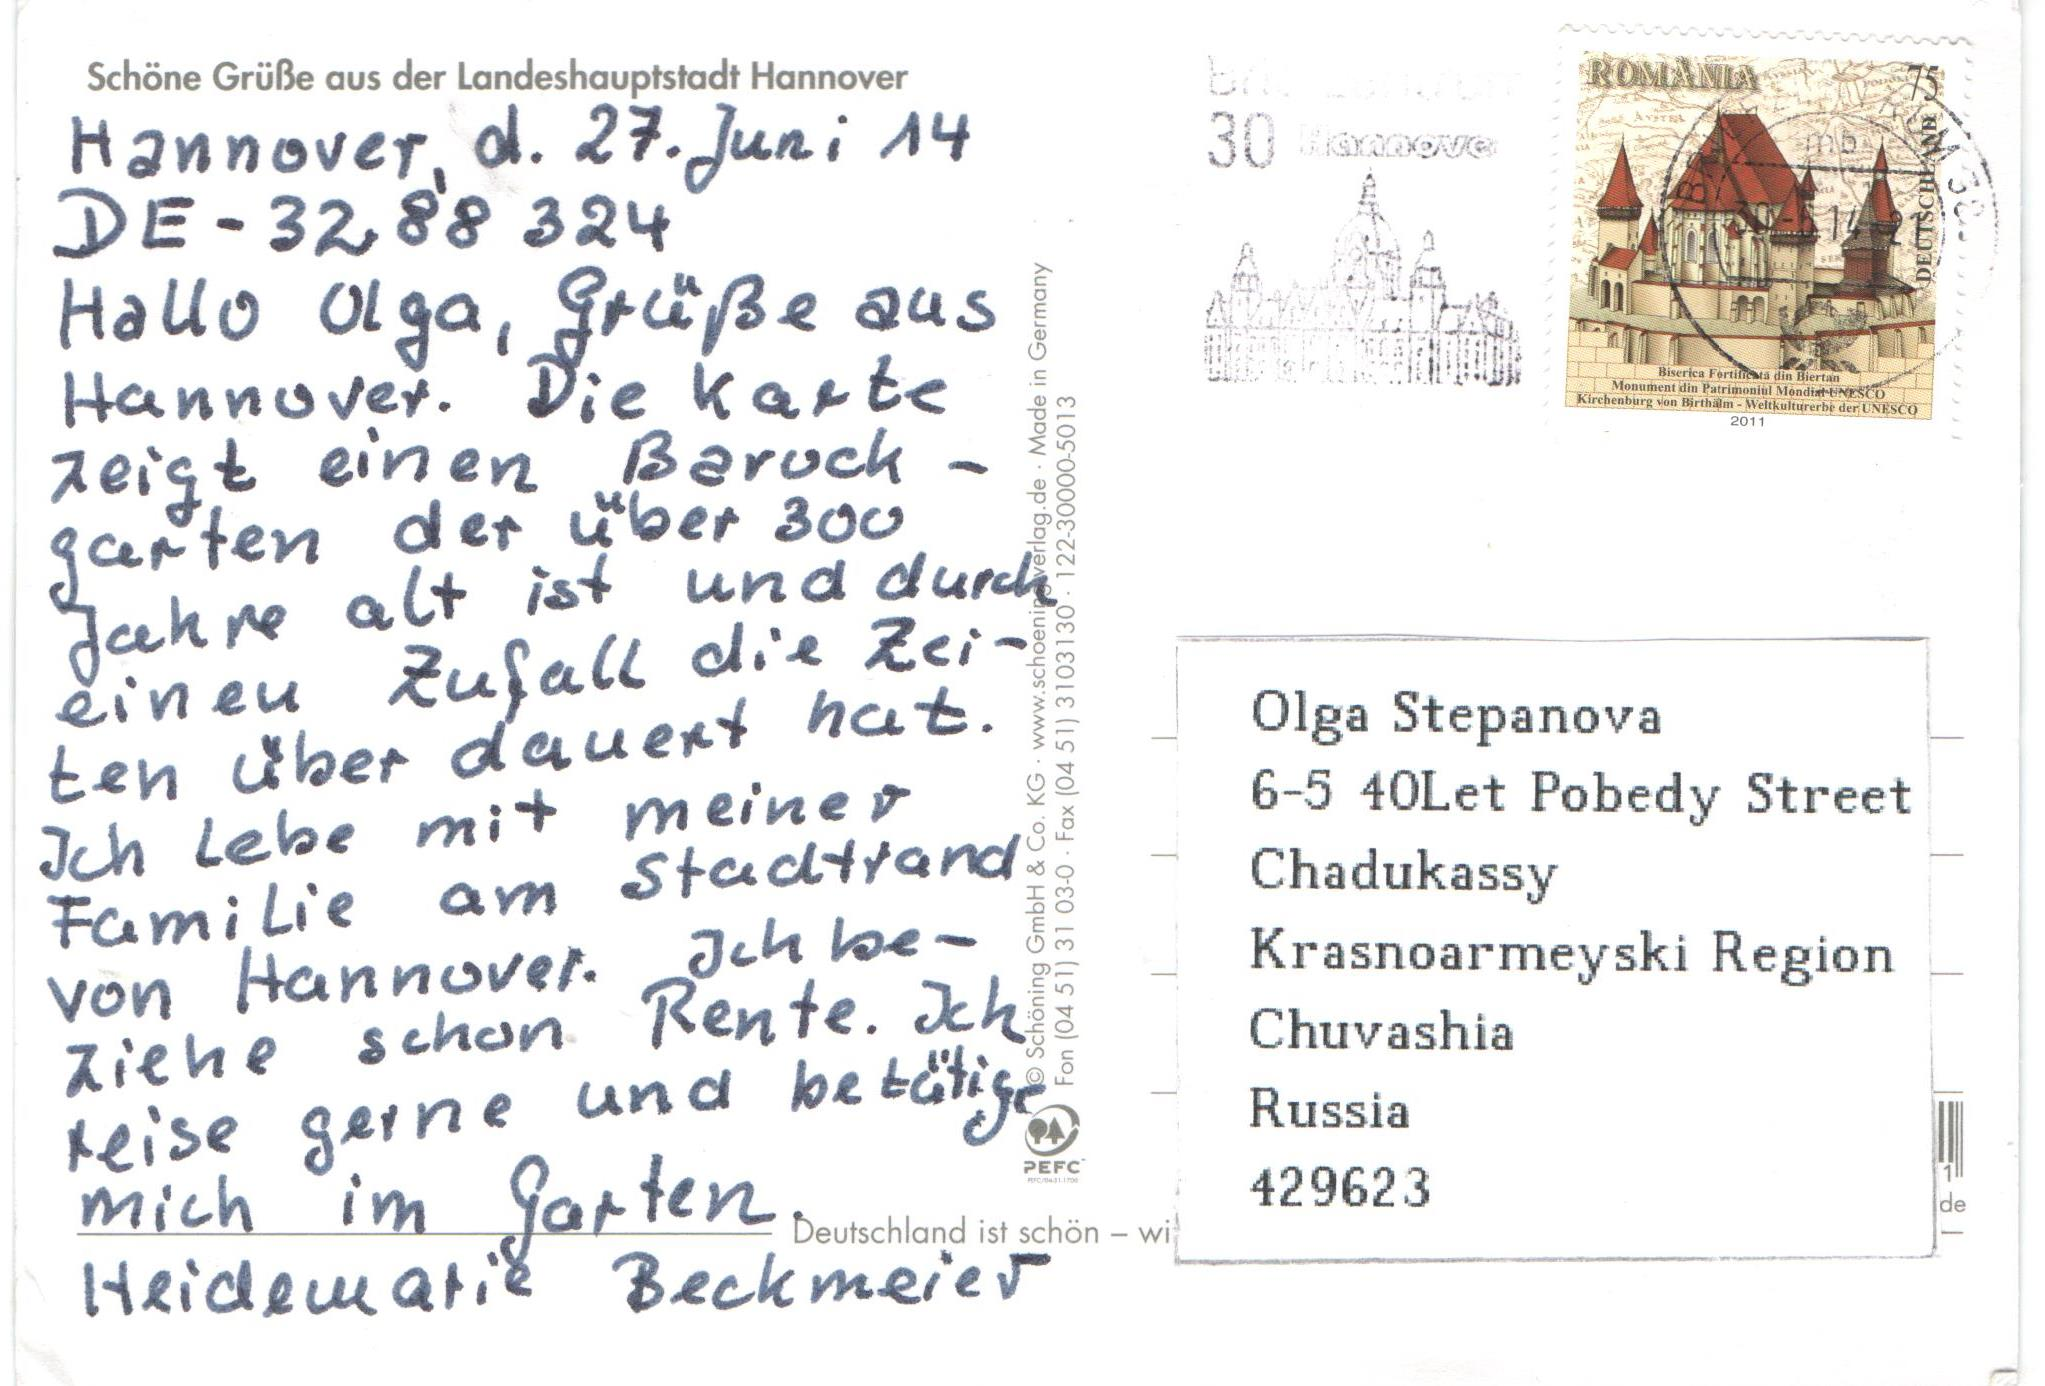 Schöne Grüße aus der Landeshauptstadt Hannover
Hannover, d. 27. Juni 14
DE - 32 88 324
Hallo Olga, Grüße aus
Hannover. Die Karte
zeigt einen Barock -
garten der über 300
Jahre alt ist und durch
einen Zufall die Zei-
ten über dauert hat.
Ich lebe mit meiner
Familie am Stadtrand
von Hannover. Ich be-
ziehe schon Rente. Ich
reise gerne und betätige
mich im Garten.
Heidemarie Beckmeier
Deutschland ist schön – wi
© Schöning GmbH & Co. KG · www.schoening-verlag.de · Made in Germany
Fon (04 51) 31 03-0 · Fax (04 51) 3103130 · 122-30000-5013
PEFC
30 Hannove
ROMÂNIA
75
DEUTSCHLAND
Biserica Fortificată din Biertan
Monument din Patrimoniul Mondial UNESCO
Kirchenburg von Birthälm - Weltkulturerbe der UNESCO
2011
Olga Stepanova
6-5 40Let Pobedy Street
Chadukassy
Krasnoarmeyski Region
Chuvashia
Russia
429623
1
de